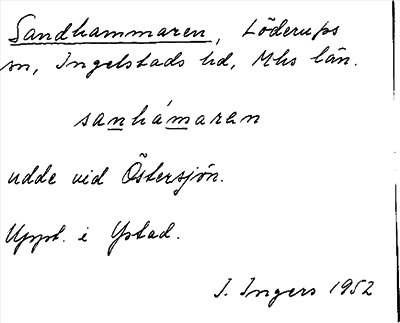 Sandhammaren, Löderups
sn, Ingelstads hd, Mhs län.
sanhámaren
udde vid Östersjön.
Uppt. i Ystad.
I. Ingers 1952